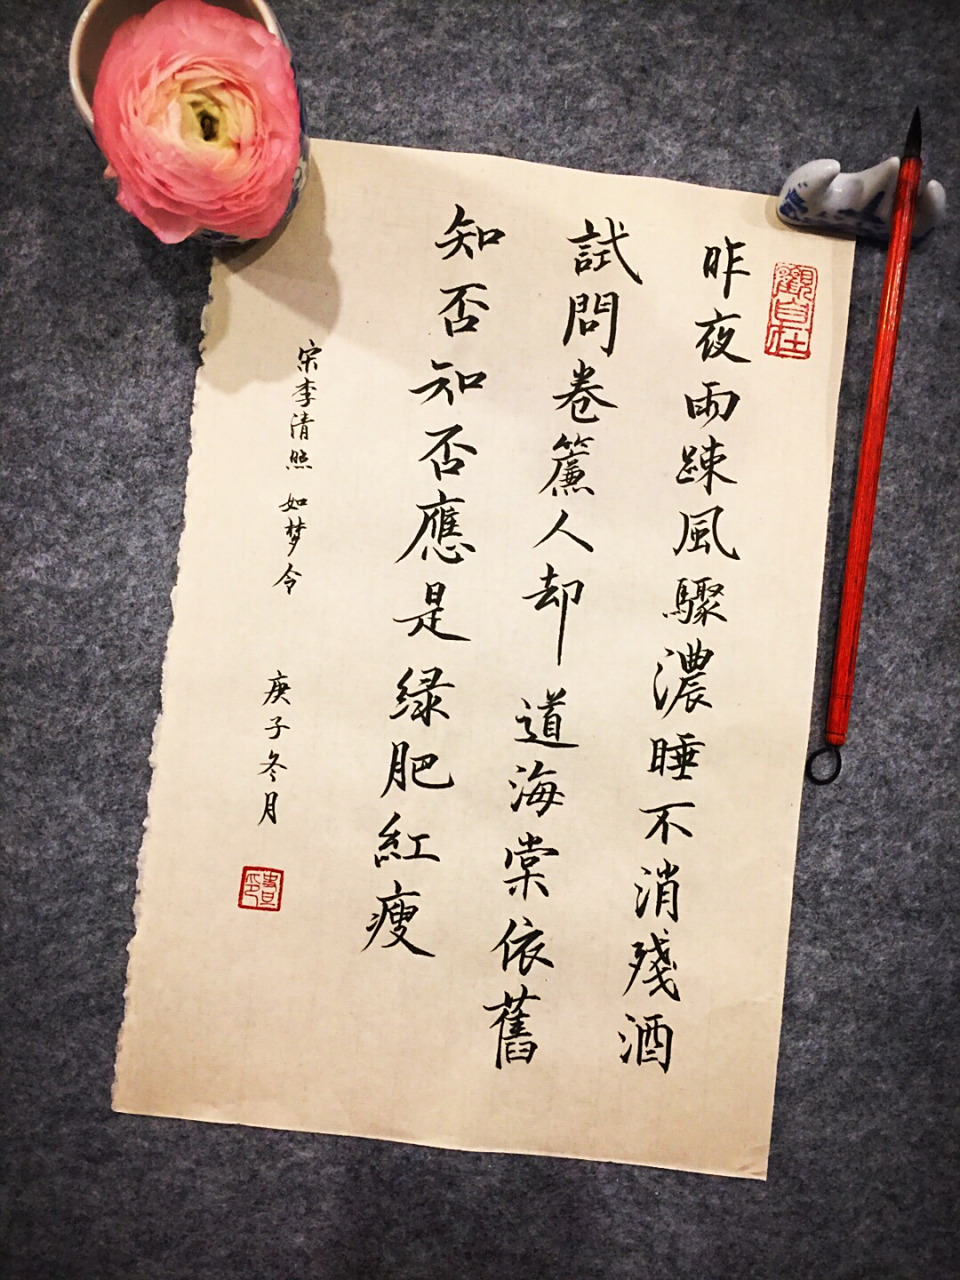 觀自在
昨夜雨踈風驟濃睡不消殘酒
試問卷簾人却道海棠依舊
知否知否應是绿肥紅瘦
宋李清照 如梦令 庚子冬月